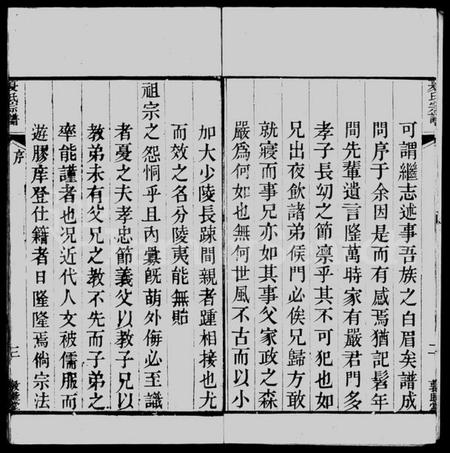 可謂繼志述事吾族之白眉矣譜成
問序于余因是而有感焉猶記髫年
聞先輩遺言隆萬時家有嚴君門多
孝子長幼之節凜乎其不可犯也如
兄出夜飲諸弟候門必俟兄歸方敢
就寢而事兄亦如其事父家政之森
嚴為何如也無何世風不古而以小
二
加大少陵長疎間親者踵相接也尤
而效之名分陵夷能無貽
祖宗之怨恫乎且內釁旣萌外侮必至識
者憂之夫孝忠節義父以教子兄以
教弟未有父兄之教不先而子弟之
率能謹者也况近代人文被儒服而
遊膠庠登仕籍者日隆隆焉倘宗法
氏宗譜
序
三